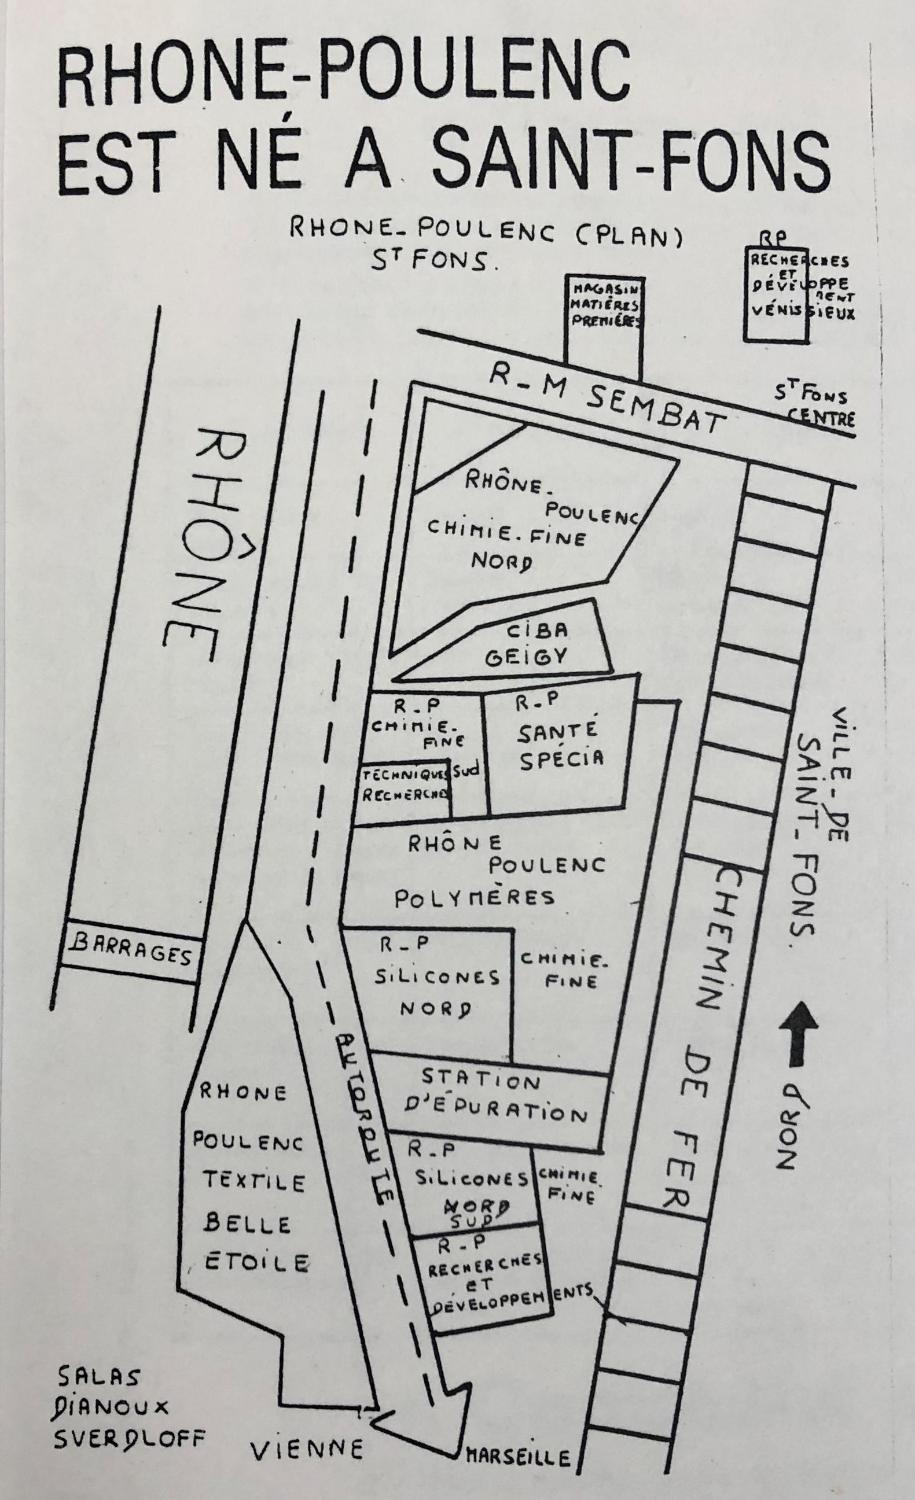 RHONE-POULENC
EST NÉ A SAINT-FONS
RHONE-POULENC (PLAN)
ST FONS.
RP
RECHERCHES
ET
DÉVELOPPE
MENT
VÉNISSIEUX
MAGASIN
MATIÈRES
PREMIÉRES
R-M SEMBAT
ST FONS
CENTRE
RHÔNE
RHÔNE-
POULENC
CHIMIE-FINE
NORD
CIBA
GEIGY
R-P
CHIMIE-
FINE
Sud
TECHNIQUES
RECHERCHE
R-P
SANTÉ
SPÉCIA
VILLE-DE
SAINT-FONS.
RHÔNE
POULENC
POLYMÈRES
BARRAGES
R-P
SILICONES
NORD
CHIMIE-
FINE
CHEMIN DE FER
NORD
AUTOROUTE
STATION
D'ÉPURATION
RHONE
POULENC
TEXTILE
BELLE
ETOILE
R-P
SILICONES
NORD
SUD
CHIMIE
FINE
R-P
RECHERCHES
ET
DÉVELOPPEMENTS
SALAS
DIANOUX
SVERDLOFF
VIENNE
MARSEILLE